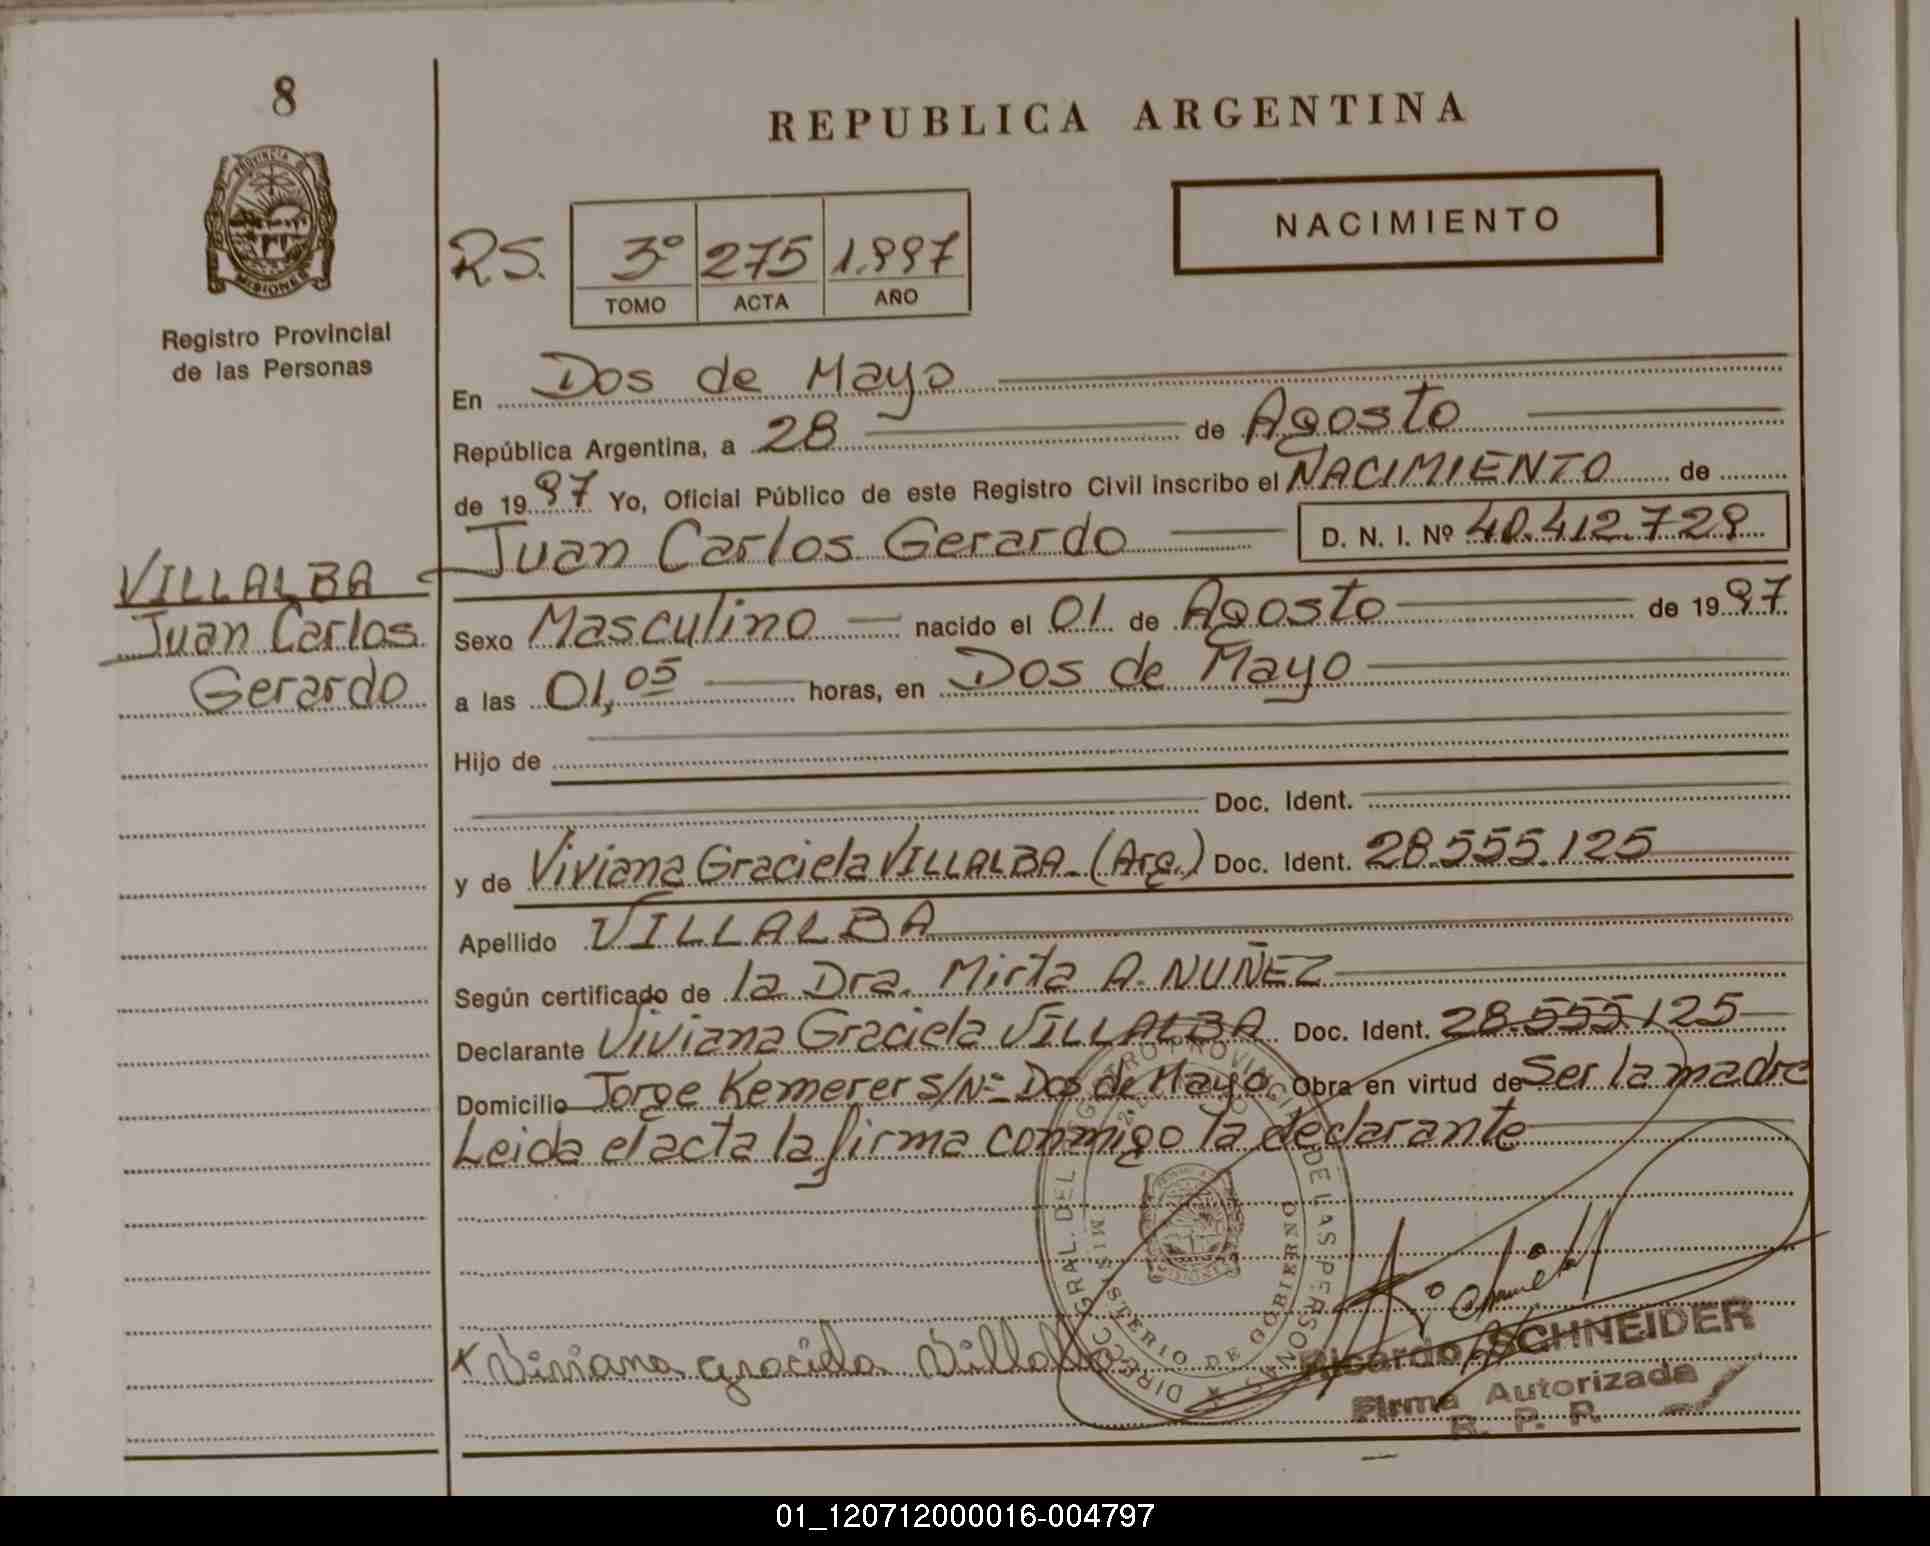 8
REPUBLICA ARGENTINA
PROVINCIA DE
MISIONES
Registro Provincial
de las Personas
NACIMIENTO
R.S. 3º 275 1.997
TOMO ACTA AÑO
En Dos de Mayo
República Argentina, a 28 de Agosto
de 1997 Yo, Oficial Público de este Registro Civil inscribo el NACIMIENTO de
Juan Carlos Gerardo D. N. I. Nº 40.412.729
VILLALBA
Juan Carlos
Gerardo
Sexo Masculino nacido el 01 de Agosto de 1997
a las 01,05 horas, en Dos de Mayo
Hijo de
Doc. Ident.
y de Viviana Graciela VILLALBA.(Arg.) Doc. Ident. 28.555.125
Apellido VILLALBA
Según certificado de la Dra. Mirta A. NUÑEZ
Declarante Viviana Graciela VILLALBA Doc. Ident. 28.555.125
Domicilio Jorge Kemerer s/Nº Dos de Mayo Obra en virtud de Ser la madre
Leida el acta la firma conmigo la declarante
DIRECC. GRAL. DEL REGISTRO PROVINCIAL DE LAS PERSONAS
MINISTERIO DE GOBIERNO
MISIONES
x Viviana graciela Villalba
Ricardo SCHNEIDER
Firma Autorizada
R. P. P.
01_120712000016-004797